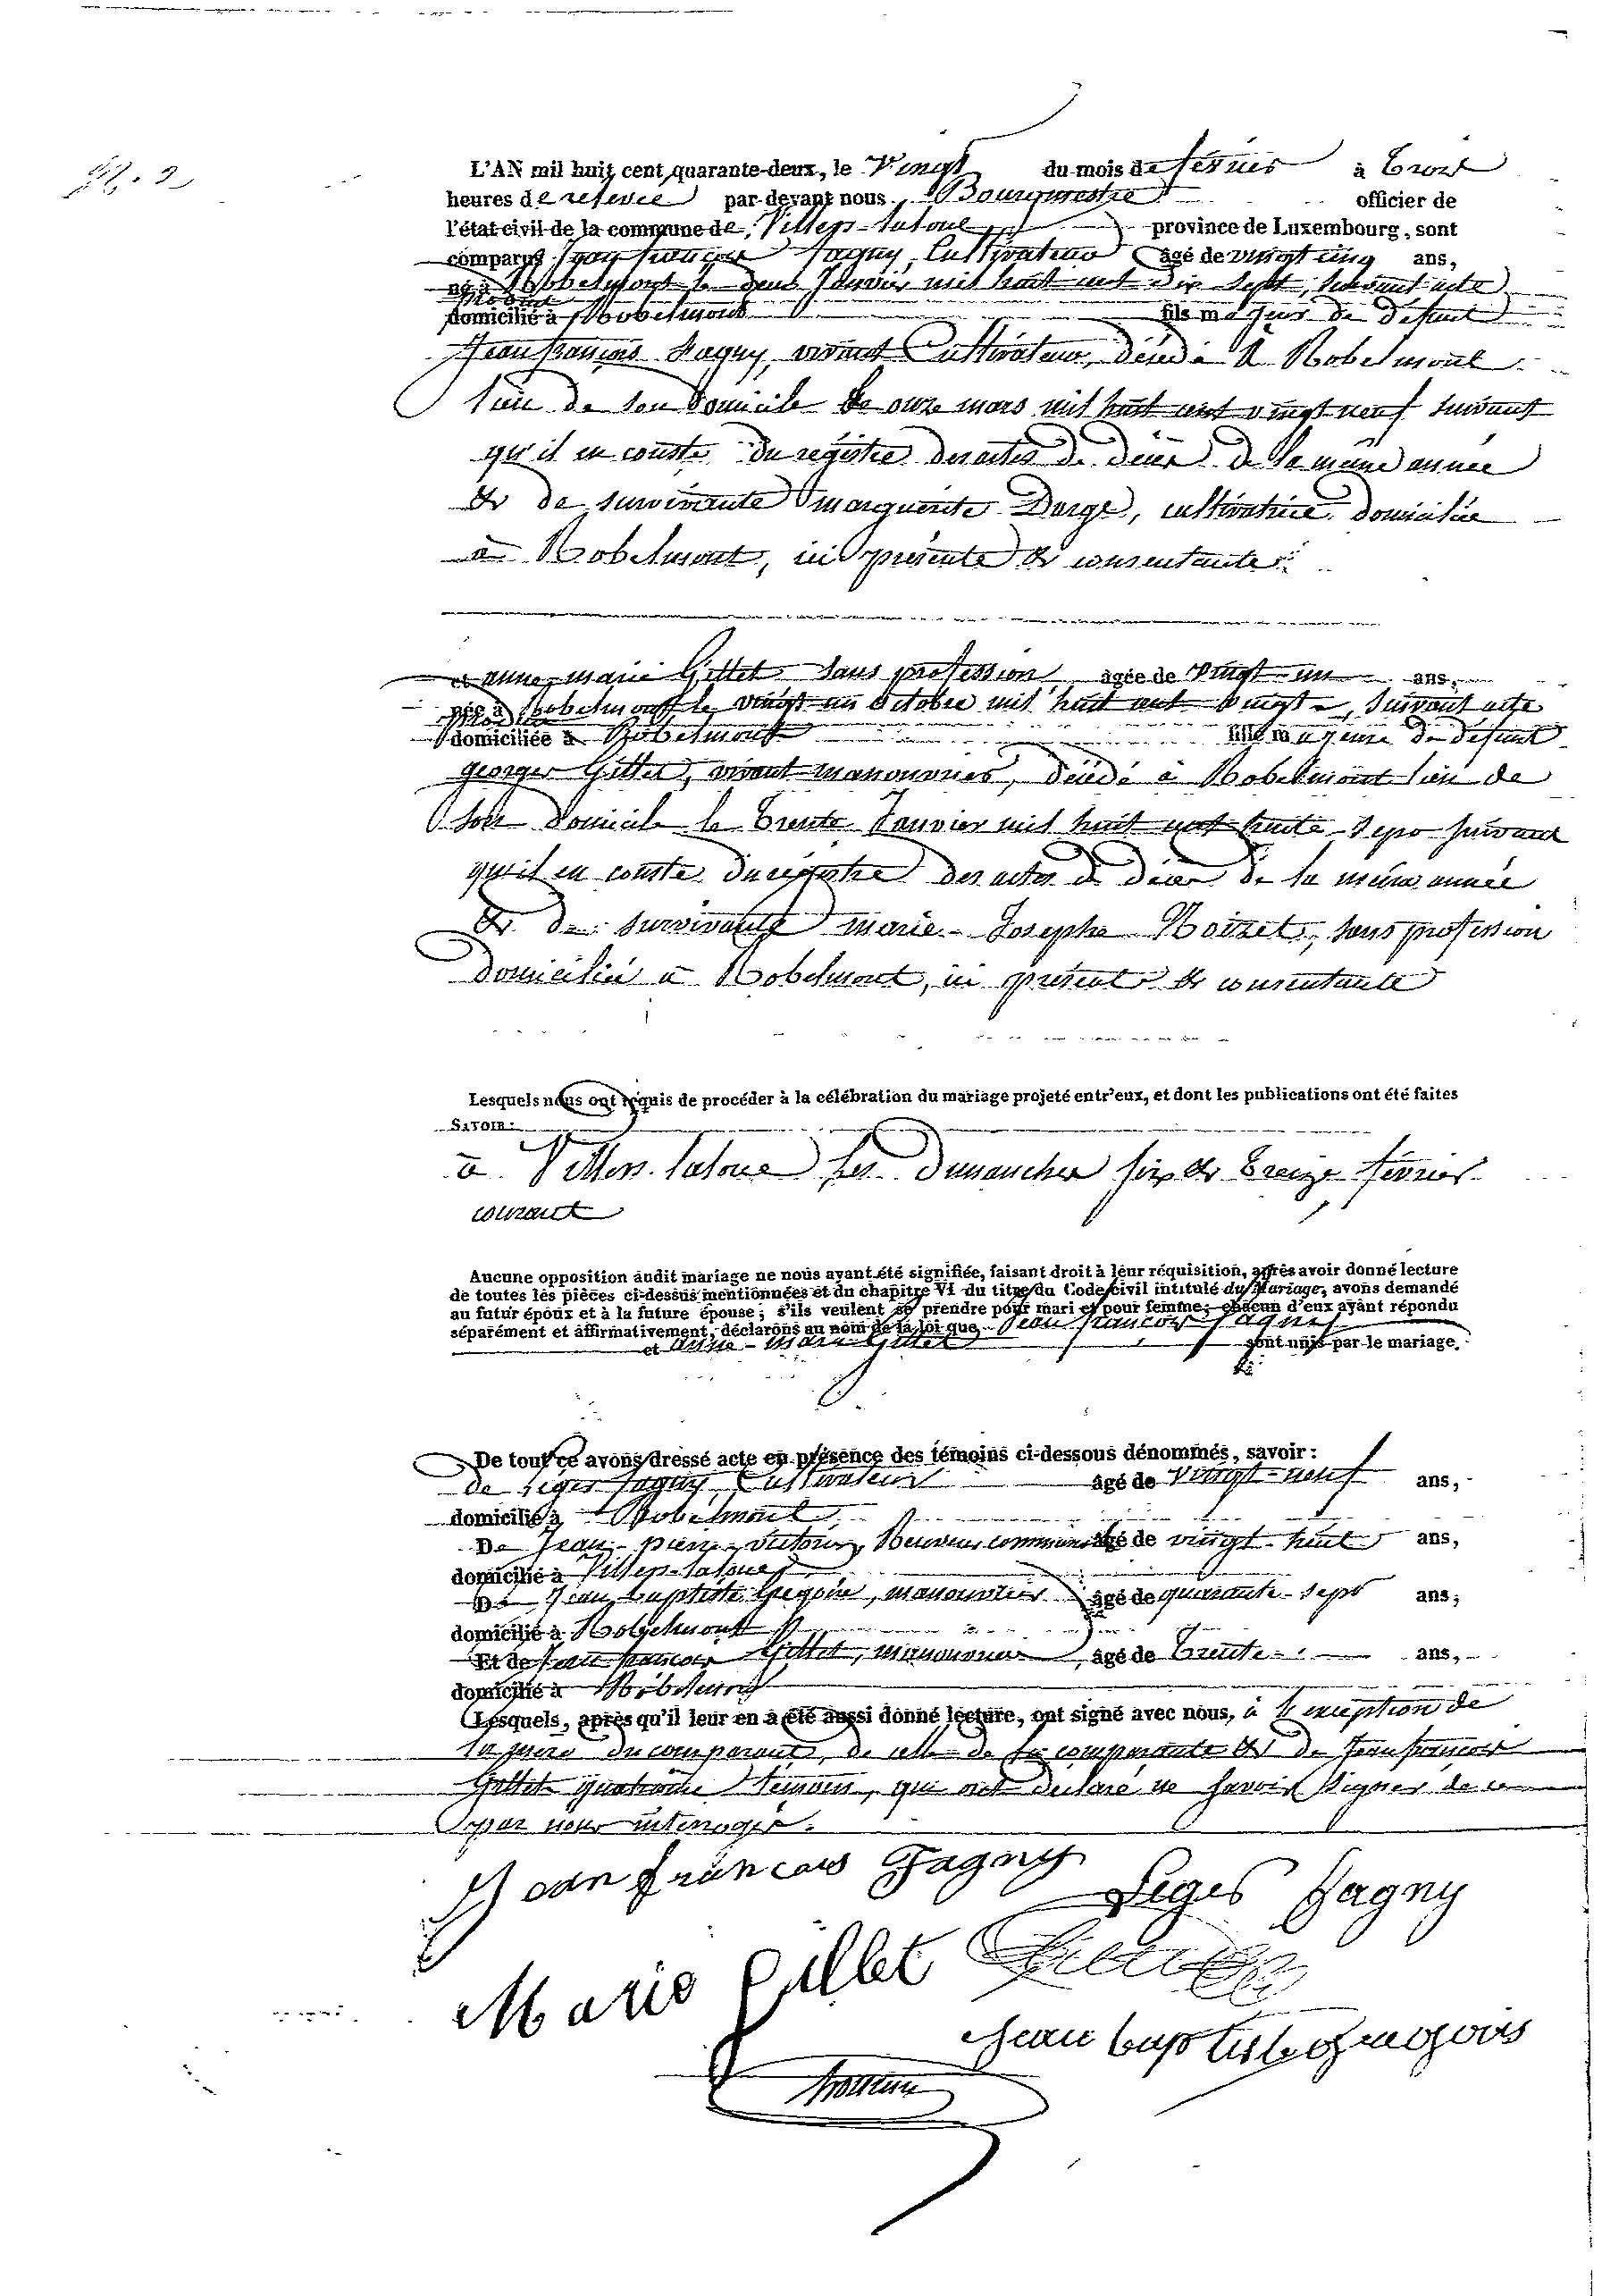 N.° 2
L'AN mil huit cent quarante-deux, le Vingt du mois de février à trois
heures de relevée par-devant nous Bourgmestre officier de
l'état civil de la commune de Villers-Latour province de Luxembourg, sont
comparus Jean françois Jagny, Cultivateur âgé de vingt cinq ans,
né à Robelmont le deux Janvier mil huit cent dix sept, suivant acte
produit
domicilié à Robelmont fils majeur de défunt
Jean françois Jagny, vivant Cultivateur, décédé à Robelmont
lieu de son domicile le onze mars mil huit cent vingt neuf suivant
qu'il en conste du régistre des actes de décès de la même année
& de survivante marguerite Dorge, cultivatrice domiciliée
à Robelmont, ici présente & consentante
et anne-marie Gillet sans profession âgée de vingt-un ans,
née à Robelmont le vingt un octobre mil huit cent vingt, suivant acte
produit
domiciliée à Robelmont fille majeure de défunt
georges Gillet, vivant manouvrier, décédé à Robelmont lieu de
son domicile le trente Janvier mil huit cent trente-sept suivant
qu'il en conste du régistre des actes de décès de la même année
& de survivante marie-Josephe Noizet, sans profession
domiciliée à Robelmont, ici présente & consentante
Lesquels nous ont requis de procéder à la célébration du mariage projeté entr'eux, et dont les publications ont été faites
SAVOIR:
à Villers-Latour les dimanches six & treize février
courant
Aucune opposition audit mariage ne nous ayant été signifiée, faisant droit à leur réquisition, après avoir donné lecture
de toutes les pièces ci-dessus mentionnées et du chapitre VI du titre du Code civil intitulé du Mariage, avons demandé
au futur époux et à la future épouse; s'ils veulent se prendre pour mari et pour femme; chacun d'eux ayant répondu
séparément et affirmativement, déclarons au nom de la loi que Jean françois Jagny
et Anne-Marie Gillet sont unis par le mariage.
De tout ce avons dressé acte en présence des témoins ci-dessous dénommés, savoir:
de Léger Jagny Cultivateur âgé de vingt-neuf ans,
domicilié à Robelmont
De Jean-pierre victor, Receveur communal âgé de vingt-huit ans,
domicilié à Villers-Latour
De Jean baptiste Gregoire, manouvrier âgé de quarante-sept ans;
domicilié à Robelmont
Et de Jean françois Gillet, manouvrier âgé de trente ans,
domicilié à Robelmont
Lesquels, après qu'il leur en a été aussi donné lecture, ont signé avec nous, à l'exception de
la mère du comparant, de celle de la comparante & de Jean françois
Gillet quatrième témoin, qui ont déclaré ne savoir signer de ce
par nous interrogés.
Jean françois Jagny
Léger Jagny
Marie Gillet
Jean baptiste gregoire